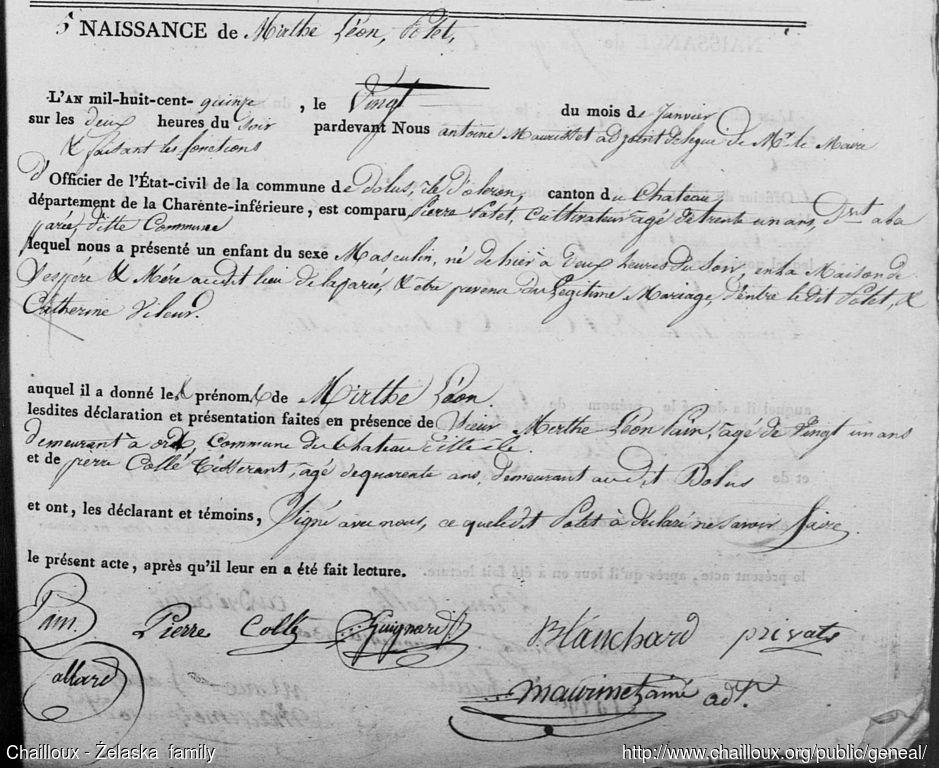 5 NAISSANCE de Mirthe Léon, Potet,
L'AN mil-huit-cent-quinze, le Vingt du mois de Janvier
sur les deux heures du Soir pardevant Nous antoine adjoint de Mr. le Maire
& faisant les fonctions
d' Officier de l'État-civil de la commune de Dolus, ile d'oleron, canton du Chateau,
département de la Charente-inférieure, est comparu Pierre Potet, Cultivateur agé de trente un ans, a la
ditte Commune
lequel nous a présenté un enfant du sexe Masculin, né de hier à Deux heures du Soir, en la Maison de
Ses père & Mére audit lieu de & être du Legitime Mariage, d'entre le dit Potet, &
Catherine
auquel il a donné les prénoms de Mirthe Léon.
lesdites déclaration et présentation faites en présence de Sieur Mirthe Léon Pain, agé de Vingt un ans
demeurant à ors, Commune du Chateau ditte ile.
et de pierre Collé Tisserant, agé de quarente ans, demeurant audit Dolus
et ont, les déclarant et témoins, Signé avec nous, ce que ledit Potet à déclaré ne savoir faire
le présent acte, après qu'il leur en a été fait lecture.
Pain Pierre Collé Guignard Blanchard privat
allard adt.
Chailloux - Želaska family http://www.chailloux.org/public/geneal/